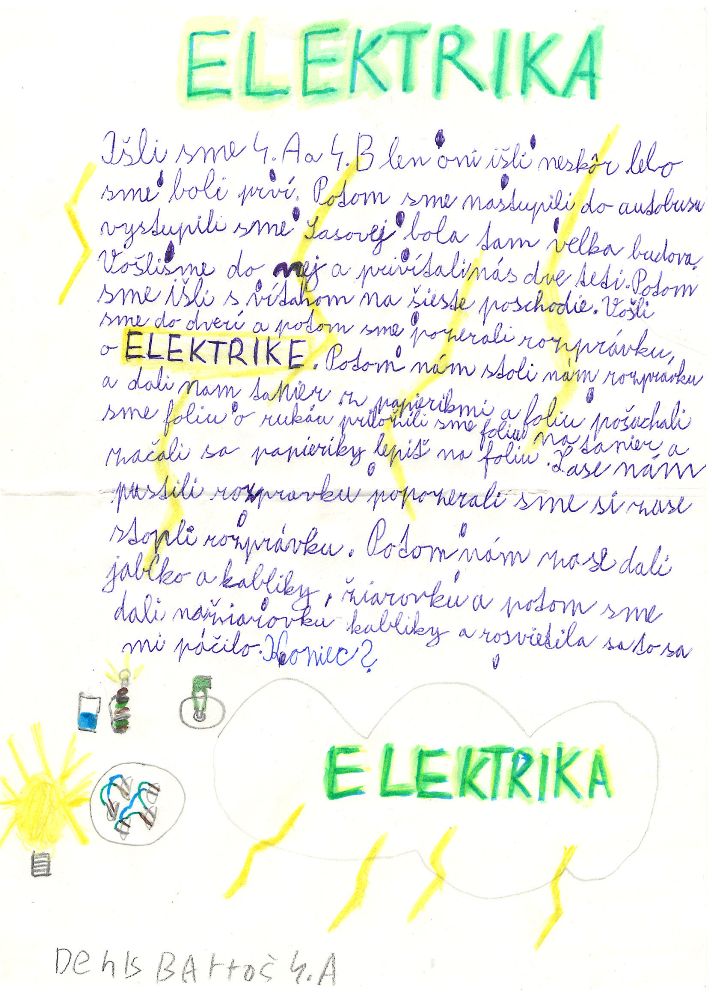 ELEKTRIKA
Išli sme 4. A a 4. B len oni išli neskôr lebo
sme boli prví. Potom sme nastupili do autobusu
vystupili sme Sasovej bola tam velka budova.
Vošlisme do nej a privítalinás dve teti. Potom
sme išli s vítahom na šieste poschodie. Vošli
sme do dverí a potom sme pozerali rozprávku,
o ELEKTRIKE. Potom nám stoli nám rozprávku
a dali nam tanier z papierikmi a foliu pošúchali
sme foliu o rukáu priložili sme foliu na tanier a
začali sa papieriky lepiť na foliu. Zase nám
pustili rozpravku popozerali sme si zase
stopli rozprávku. Potom nám zase dali
jablko a kabliky, žiarovku a potom sme
dali nažiarovku kabliky a rosvietila sa to sa
mi páčilo. Koniec?
ELEKTRIKA
Denis Bartoš 4. A